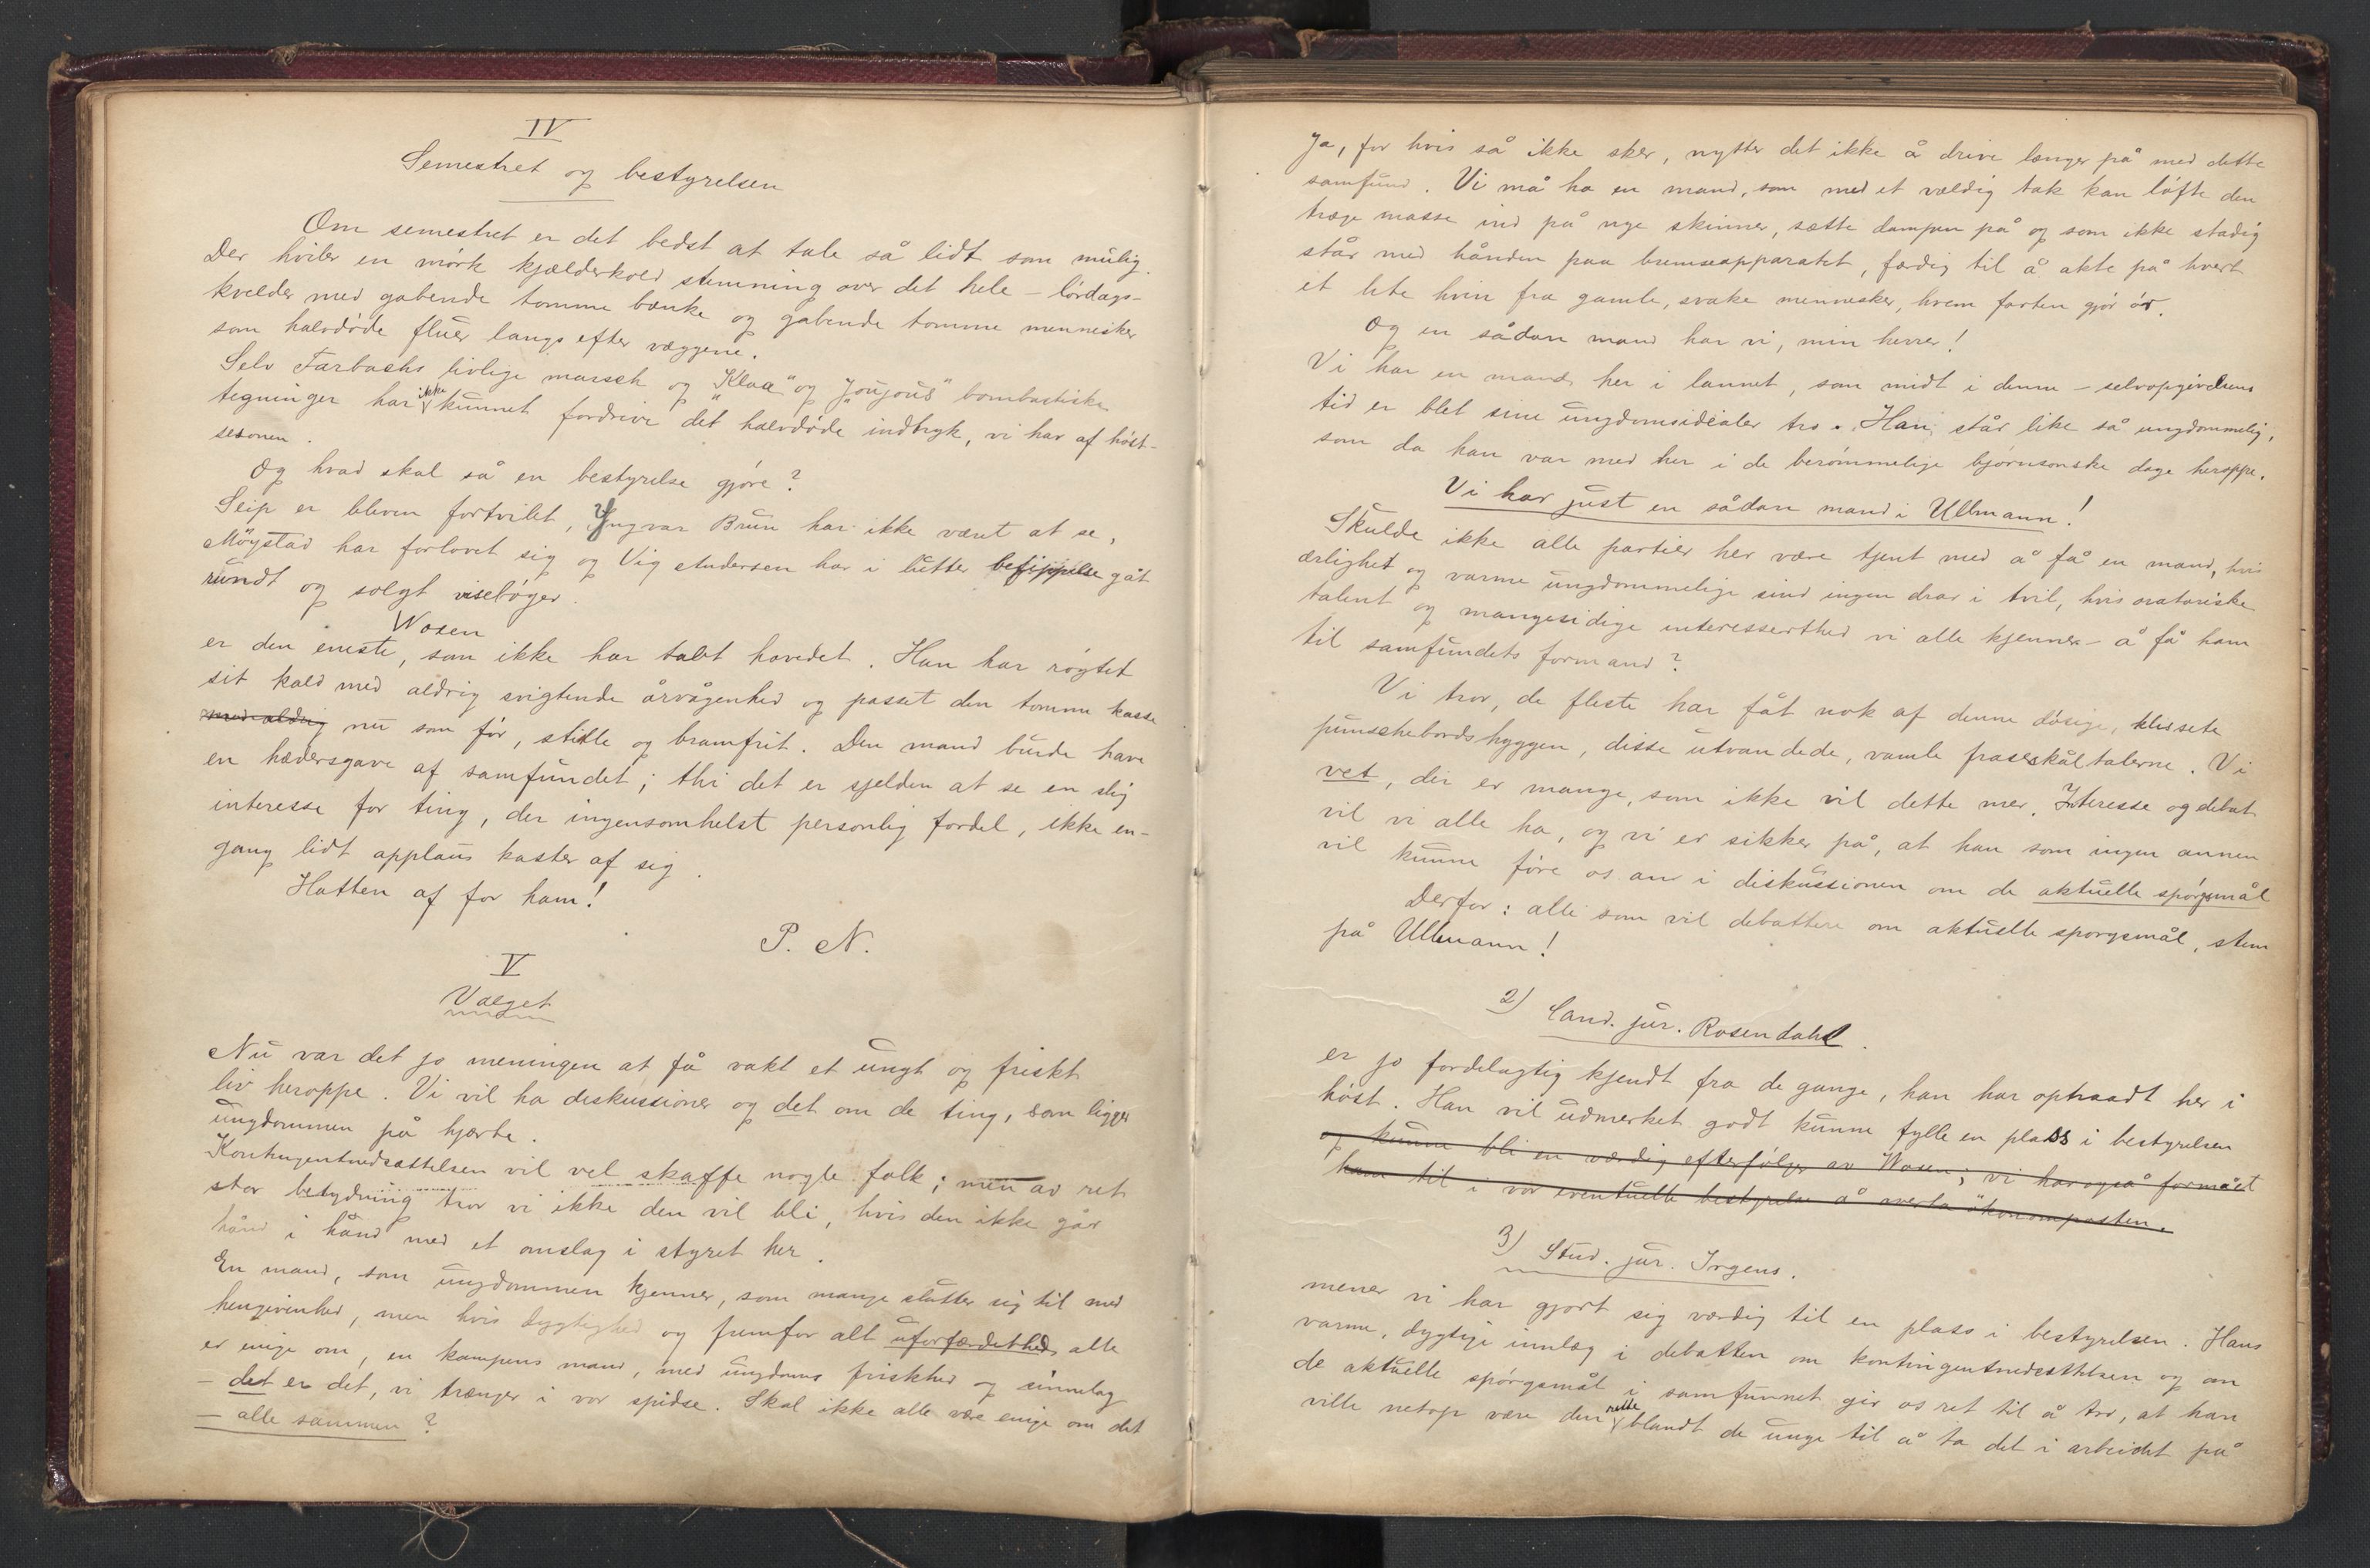 IV
Semestret og bestyrelsen
Om semestret er det bedst at tale så lidt som mulig.
Der hviler en mørk kjælderkold stemning over det hele – lørdags-
kvelder med gabende tomme bænke og gabende tomme mennesker
som halvdøde fluer langs efter væggene.
Selv Farbachs livlige marsch og "Klaa" og "Joujous" bombastiske
tegninger har ikke kunnet fordrive det halvdøde indtryk, vi har af høst-
sesonen.
Og hvad skal så en bestyrelse gjøre?
Seip er bleven fortvilet, Yngvar Brun har ikke været at se,
Møystad har forlovet sig og Vig studersen har i lutter befippelse gåt
rundt og solgt visebøger.
Wosen
er den eneste, som ikke har tabt hovedet. Han har røgtet
sit kald med aldrig svigtende årvågenhed og passet den tomme kasse
med aldrig nu som før, stille og bramfrit. Den mand burde have
en hædersgave af samfundet; thi det er sjelden at se en slig
interesse for ting, der ingensomhelst personlig fordel, ikke en-
gang lidt applaus kaster af sig.
Hatten af for ham!
P. N.
V
Valget
Nu var det jo meningen at få vakt et ungt og friskt
liv heroppe. Vi vil ha diskussioner og det om de ting, som ligger
ungdommen på hjærte.
Kontingentnedsættelsen vil vel skaffe nogle folk; men av ret
stor betydning tror vi ikke den vil bli, hvis den ikke går
hånd i hånd med et omslag i styret her.
En mand, som ungdommen kjenner, som mange slutter sig til med
hengivenhed, men hvis dygtighed og fremfor alt uforfærdethed alle
er enige om, en kampens mand, med ungdoms friskhed og sinnelag
– det er det, vi trænger i vor spidse. Skal ikke alle være enige om det
– alle sammen?
Ja, for hvis så ikke sker, nytter det ikke å drive længer på med dette
samfund. Vi må ha en mand, som med et vældig tak kan løfte den
træge masse ind på nye skinner, sætte dampen på og som ikke stadig
står med hånden paa bremseapparatet, færdig til å akte på hvert
et lite hvin fra gamle, svake mennesker, hvem farten gjør ør.
Og en sådan mand har vi, mine herrer!
Vi har en mand her i lannet, som midt i denne – selvopgivelsens
tid er blet sine ungdomsidealer tro. Han står like så ungdommelig,
som da han var med her i de berømmelige bjørnsonske dage heroppe.
Vi har just en sådan mand i Ullmann!
Skulde ikke alle partier her være tjent med å få en mand, hvis
ærlighet og varme ungdommelige sind ingen drar i tvil, hvis oratoriske
talent og mangesidige interesserthed vi alle kjenner – å få ham
til samfundets formand?
Vi tror, de fleste har fåt nok af denne døsige, klissete
punschebordshyggen, disse utvandede, vamle fraseskåltalerne. Vi
vet, der er mange, som ikke vil dette mer. Interesse og debat
vil vi alle ha, og vi er sikker på, at han som ingen annen
vil kunne føre os an i diskussionen om de aktuelle spørgsmål
Derfor: alle som vil debattere om aktuelle spørgsmål, stem
på Ullmann!
2) Cand. jur. Rosendahl.
er jo fordelagtig kjendt fra de gange, han har optraadt her i
høst. Han vil udmerket godt kunne fylle en plass i bestyrelsen
og kunne bli en værdig efterfølger av Wosen; vi har også formået
ham til i vor eventuelle bestyrelse å overta økonomposten.
3) Stud. jur. Irgens.
mener vi har gjort sig værdig til en plass i bestyrelsen. Hans
varme, dygtige innlæg i debatten om kontingentnedsettelsen og om
de aktuelle spørgsmål i samfunnet gir os ret til å tro, at han
ville netop være den rette blandt de unge til å ta del i arbeidet på